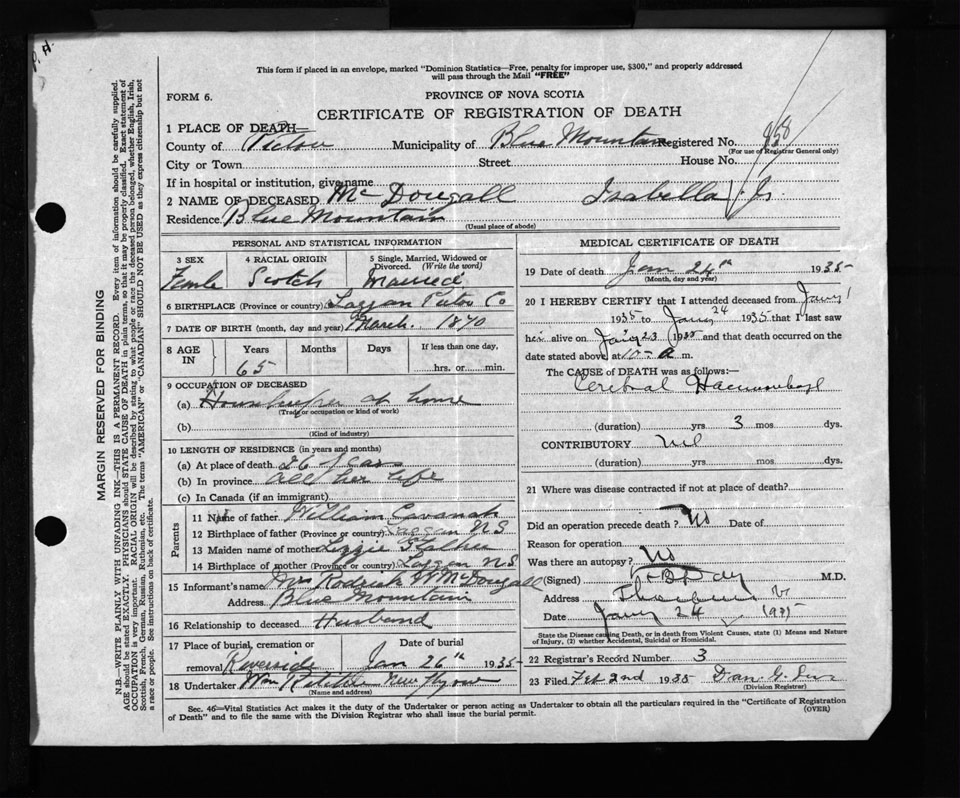 P. H.
This form if placed in an envelope, marked "Dominion Statistics—Free, penalty for improper use, $300," and properly addressed
will pass through the Mail "FREE"
FORM 6.
PROVINCE OF NOVA SCOTIA
CERTIFICATE OF REGISTRATION OF DEATH
1 PLACE OF DEATH—
County of Pictou Municipality of Blue Mountain Registered No. 858
(For use of Registrar General only)
City or Town Street House No.
If in hospital or institution, give name
2 NAME OF DECEASED McDougall Isabella J.
Residence Blue Mountain
(Usual place of abode)
PERSONAL AND STATISTICAL PARTICULARS
3 SEX 4 RACIAL ORIGIN 5 Single, Married, Widowed or
Divorced. (Write the word)
Femle Scotch Married
6 BIRTHPLACE (Province or country) Laggan Pictou Co
7 DATE OF BIRTH (month, day and year) March. 1870
8 AGE IN Years Months Days If less than one day,
65 hrs. or min.
9 OCCUPATION OF DECEASED
(a) Housekeeper at home
(Trade or occupation or kind of work)
(b)
(Kind of industry)
10 LENGTH OF RESIDENCE (in years and months)
(a) At place of death 26 years
(b) In province all her life
(c) In Canada (if an immigrant)
Parents
11 Name of father William Cavanah
12 Birthplace of father (Province or country) Laggan N S
13 Maiden name of mother Lizzie
14 Birthplace of mother (Province or country) Laggan N.S
15 Informant's name Roderick W McDougall
Address Blue Mountain
16 Relationship to deceased Husband
17 Place of burial, cremation or Date of burial
removal Riverside Jan 26th 1935
18 Undertaker Wm New Glasgow
(Name and address)
MEDICAL CERTIFICATE OF DEATH
19 Date of death Jan 24th 1935
(Month, day and year)
20 I HEREBY CERTIFY that I attended deceased from Jany 1
1935 to Jany 24 1935 that I last saw
her alive on Jany 23 1935 and that death occurred on
date stated above at 10- a m.
The CAUSE of DEATH was as follows:—
Cerebral Haemorrhage
(duration) yrs 3 mos dys.
CONTRIBUTORY nil
(duration) yrs. mos. dys.
21 Where was disease contracted if not at place of death?
Did an operation precede death? No Date of
Reason for operation
Was there an autopsy? No
(Signed) Day M.D.
Address Thorburn
Date Jany 24 1935
State the Disease causing Death, or in death from Violent Causes, state (1) Means and Nature
of Injury, (2) whether Accidental, Suicidal or Homicidal.
22 Registrar's Record Number 3
23 Filed Feb 2nd 1935 Dan G.
(Division Registrar)
Sec. 46—Vital Statistics Act makes it the duty of the Undertaker or person acting as Undertaker to obtain all the particulars required in the "Certificate of Registration
of Death" and to file the same with the Division Registrar who shall issue the burial permit. (OVER)
MARGIN RESERVED FOR BINDING
N.B.—WRITE PLAINLY WITH UNFADING INK—THIS IS A PERMANENT RECORD. Every item of information should be carefully supplied.
AGE should be stated EXACTLY. PHYSICIANS should STATE CAUSE OF DEATH in plain terms, so that it may be properly classified. Exact statement of
OCCUPATION is very important. RACIAL ORIGIN will be described by stating to what people or race the deceased person belonged, whether English, Irish,
Scottish, French, German, Russian, Ruthenian, etc. The terms "AMERICAN" or "CANADIAN" SHOULD NOT BE USED as they express citizenship but not
a race or people. See instructions on back of certificate.